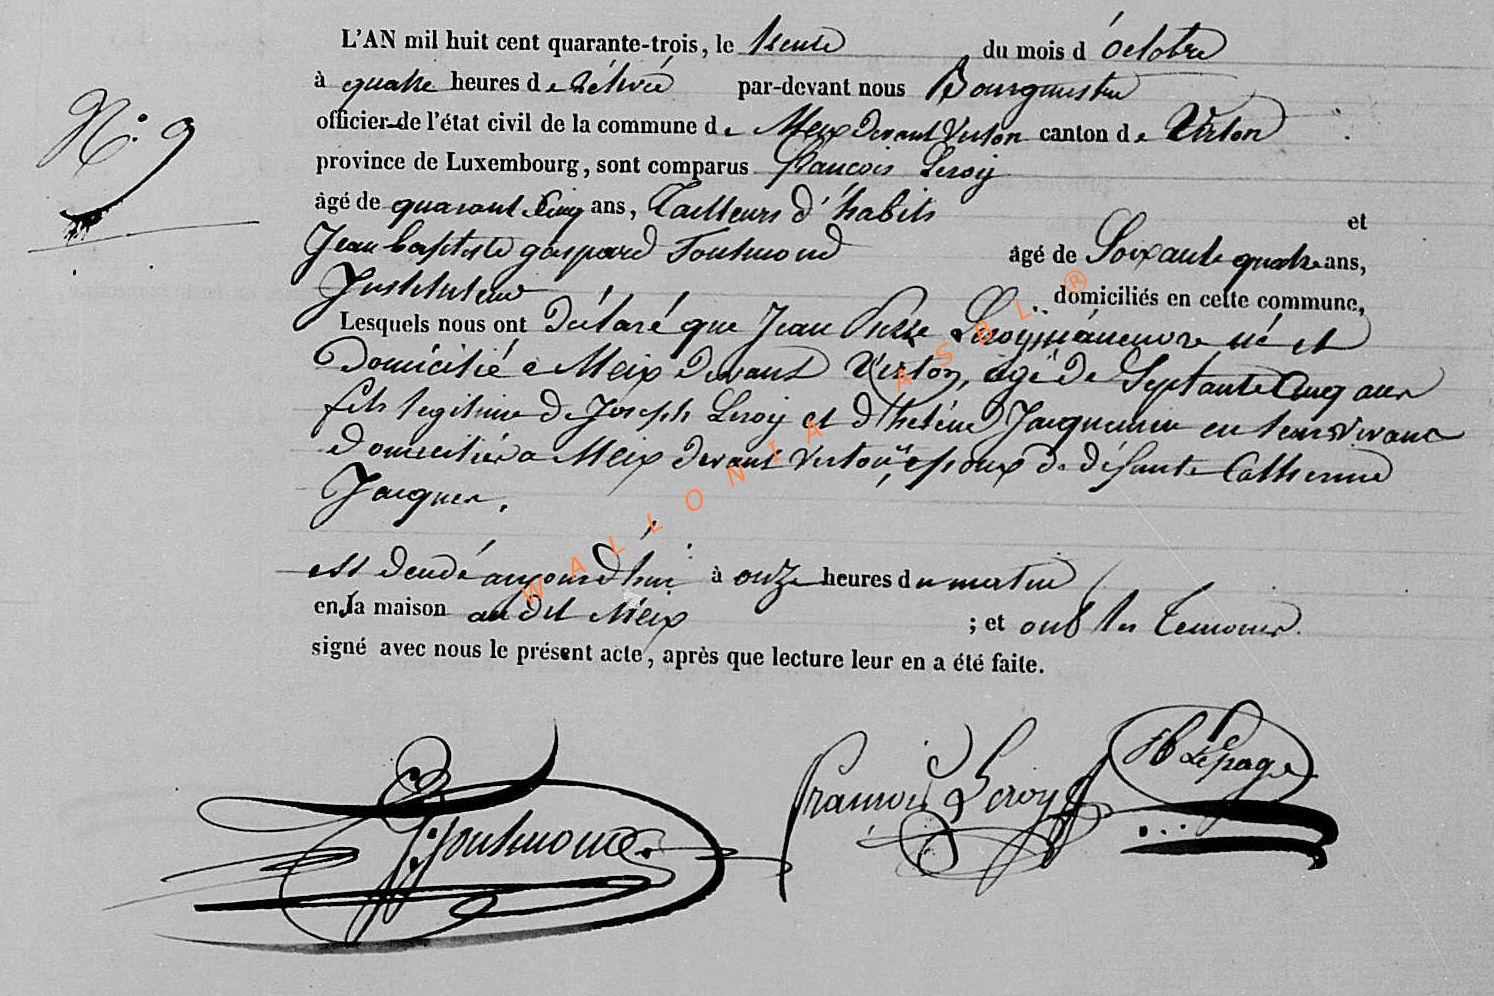 N.° 9
L'AN mil huit cent quarante-trois, le trente du mois d'octobre
à quatre heures de rélévée par-devant nous Bourgmestre
officier de l'état civil de la commune de Meix devant Virton canton de Virton
province de Luxembourg, sont comparus françois Leroÿ
âgé de quarant Cinq ans, Tailleurs d'habits et
Jean baptiste gaspard Toutmond âgé de Soixante quatre ans,
Instituteur domiciliés en cette commune,
Lesquels nous ont déclaré que Jean Pierre Leroÿ manœuvre né et
domicilié a Meix devant Virton, agé de Septante Cinq ans
fils legitime de Joseph Leroÿ et d'helène Jacquemin en leur vivant
domiciliés a Meix devant Virton, epoux de défunte Catherine
Jacques,
est décédé aujourd'hui à onze heures du matin
en la maison au dit Meix ; et ont les temoins
signé avec nous le présent acte, après que lecture leur en a été faite.
Toutmond
François Leroy
Lepage
WALLONIA ASBL ®